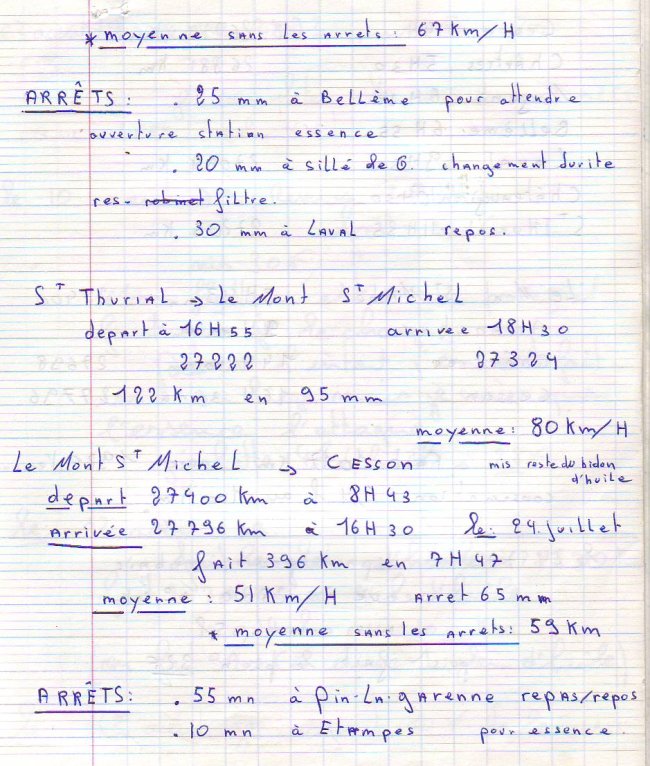 * moyenne sans les arrets : 67 Km/H
ARRÊTS : . 25 mm à Bellème pour attendre
ouverture station essence
. 20 mm à sillé de G. changement durite
res- robinet filtre.
. 30 mm à LAVAL repos.
ST THURIAL → Le Mont ST Michel
depart à 16H55 arrivee 18H30
27222 27324
122 Km en 95 mm
moyenne : 80 Km/H
Le Mont ST Michel → CESSON mis reste du bidon
d'huile
départ 27400 Km à 8H43
Arrivée 27796 Km à 16H30 le : 24 juillet
fAit 396 Km en 7H47
moyenne : 51 Km/H Arret 65 mm
* moyenne sans les arrets : 59 Km
ARRÊTS : . 55 mn à Pin-La-gArenne repAs/repos
. 10 mn à Etampes pour essence.